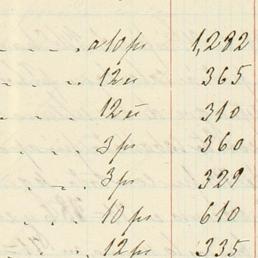 a 10 ps 1,282
12 " 365
12 " 310
3 ps 360
3 ps 329
10 ps 610
12 ps 335